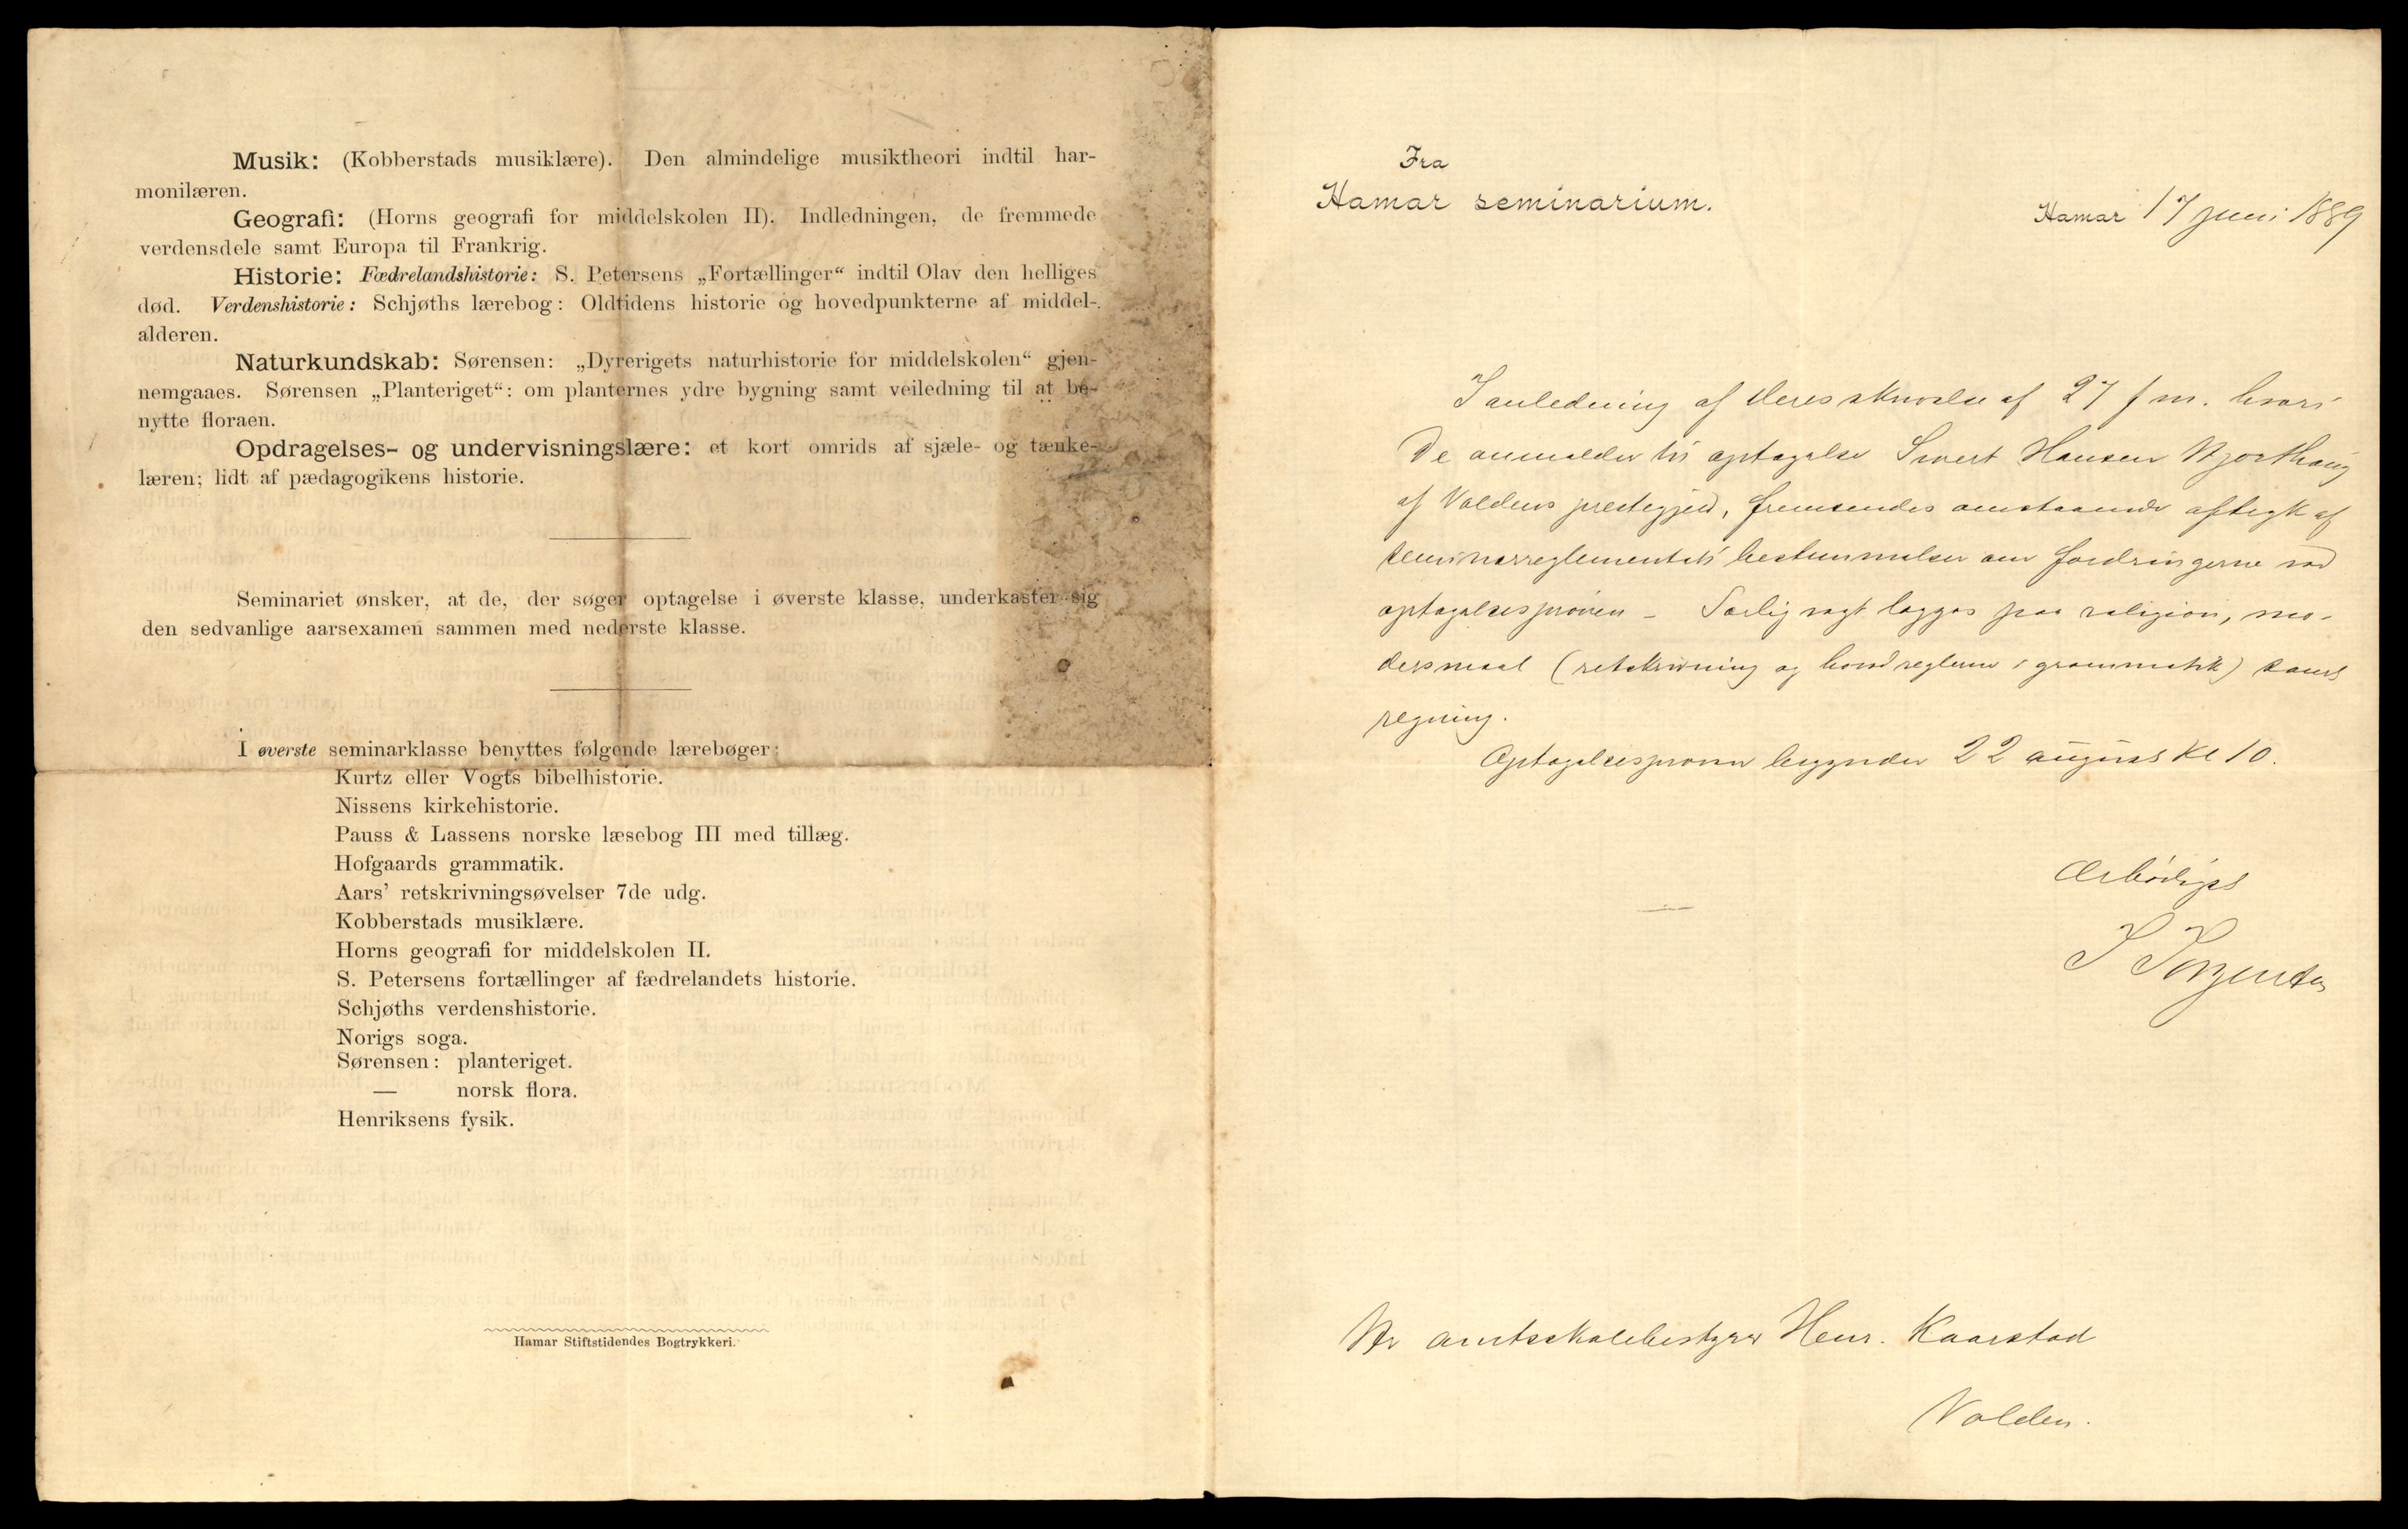 Musik: (Kobberstads musiklære). Den almindelige musiktheori indtil har-
monilæren.
Geografi: (Horns geografi for middelskolen II). Indledningen, de fremmede
verdensdele samt Europa til Frankrig.
Historie: Fædrelandshistorie: S. Petersens „Fortællinger“ indtil Olav den helliges
død. Verdenshistorie: Schjøths lærebog: Oldtidens historie og hovedpunkterne af middel-
alderen.
Naturkundskab: Sørensen: „Dyrerigets naturhistorie for middelskolen“ gjen-
nemgaaes. Sørensen „Planteriget“: om planternes ydre bygning samt veiledning til at be-
nytte floraen.
Opdragelses- og undervisningslære: et kort omrids af sjæle- og tænke-
læren; lidt af pædagogikens historie.
Seminariet ønsker, at de, der søger optagelse i øverste klasse, underkaster sig
den sedvanlige aarsexamen sammen med nederste klasse.
I øverste seminarklasse benyttes følgende lærebøger:
Kurtz eller Vogts bibelhistorie.
Nissens kirkehistorie.
Pauss & Lassens norske læsebog III med tillæg.
Hofgaards grammatik.
Aars’ retskrivningsøvelser 7de udg.
Kobberstads musiklære.
Horns geografi for middelskolen II.
S. Petersens fortællinger af fædrelandets historie.
Schjøths verdenshistorie.
Norigs soga.
Sørensen: planteriget.
— norsk flora.
Henriksens fysik.
Hamar Stiftstidendes Bogtrykkeri.
Fra
Hamar seminarium.
Hamar 17 juni 1889
I anledning af Deres skrivelse af 27 f m. hvori
De anmelder til optagelse Sivert Hansen
af Voldens prestegjeld, fremsendes omstaaende aftryk af
seminarreglementets bestemmelser om fordringerne ved
optagelsesprøven – Særlig vegt lægges paa religion, mo-
dersmaal (retskrivning og hovedreglerne i grammatik) samt
regning.
Optagelsesprøven begynder 22 august kl 10.
Ærbødigst
Hr amtsskolebestyrer Henr. Kaarstad
Volden.